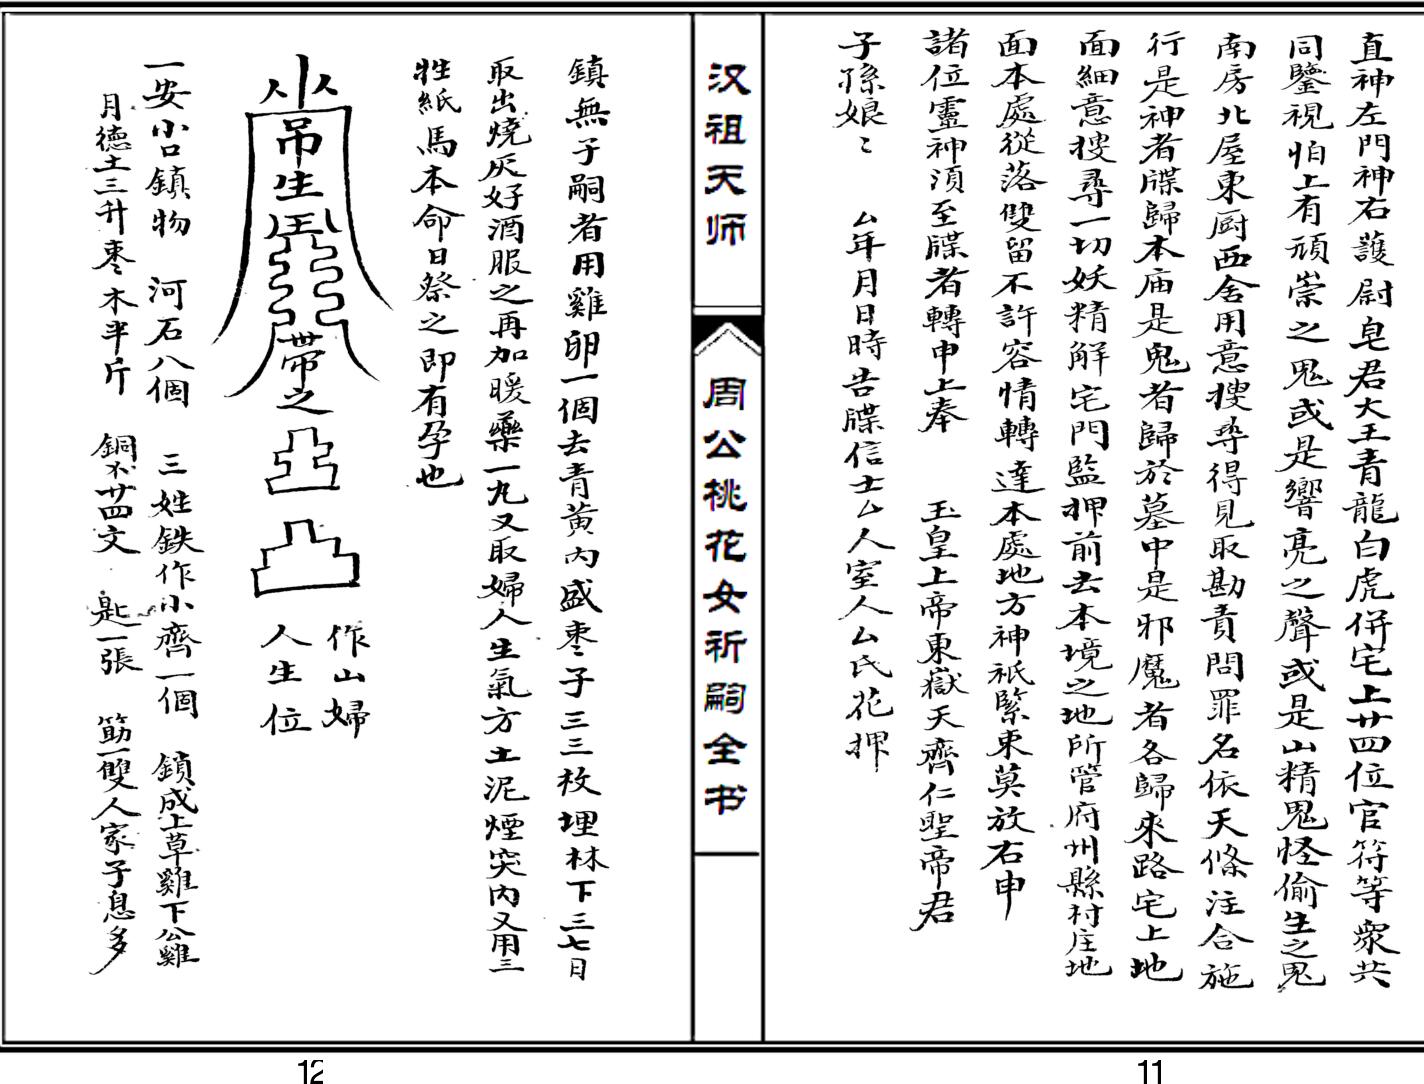 直神左門神右護尉皂君大王青龍白虎併宅上廿四位官符等衆共
同鑒視怕上有頑祟之鬼或是響亮之聲或是山精鬼怪偷生之鬼
南房北屋東厨西舍用意搜尋得見取勘責問罪名依天條注合施
行是神者牒歸本庙是鬼者歸於墓中是邪魔者各歸來路宅上地
面細意搜尋一切妖精解宅門監押前去本境之地所管府州縣村庄地
面本處從落雙留不許容情轉達本處地方神祇緊束莫放右申
諸位靈神須至牒者轉申上奉 玉皇上帝東嶽天齊仁聖帝君
子孫娘〻 厶年月日時告牒信士厶人室人厶氏花押
汉祖天师
周公桃花女祈嗣全书
鎮無子嗣者用雞卵一個去青黄内盛枣子三三枚埋林下三七日
取出燒灰好酒服之再加暖藥一丸又取婦人生氣方土泥煙突内又用三
牲紙馬本命日祭之即有孕也
吊生
帶之
作山婦
人生位
一安小口鎮物 河石八個 三姓鉄作小齊一個 鎖成上草雞下公雞
月德土三升枣木半斤 銅不廿四文 匙一張 筯一雙人家子息多
12
11